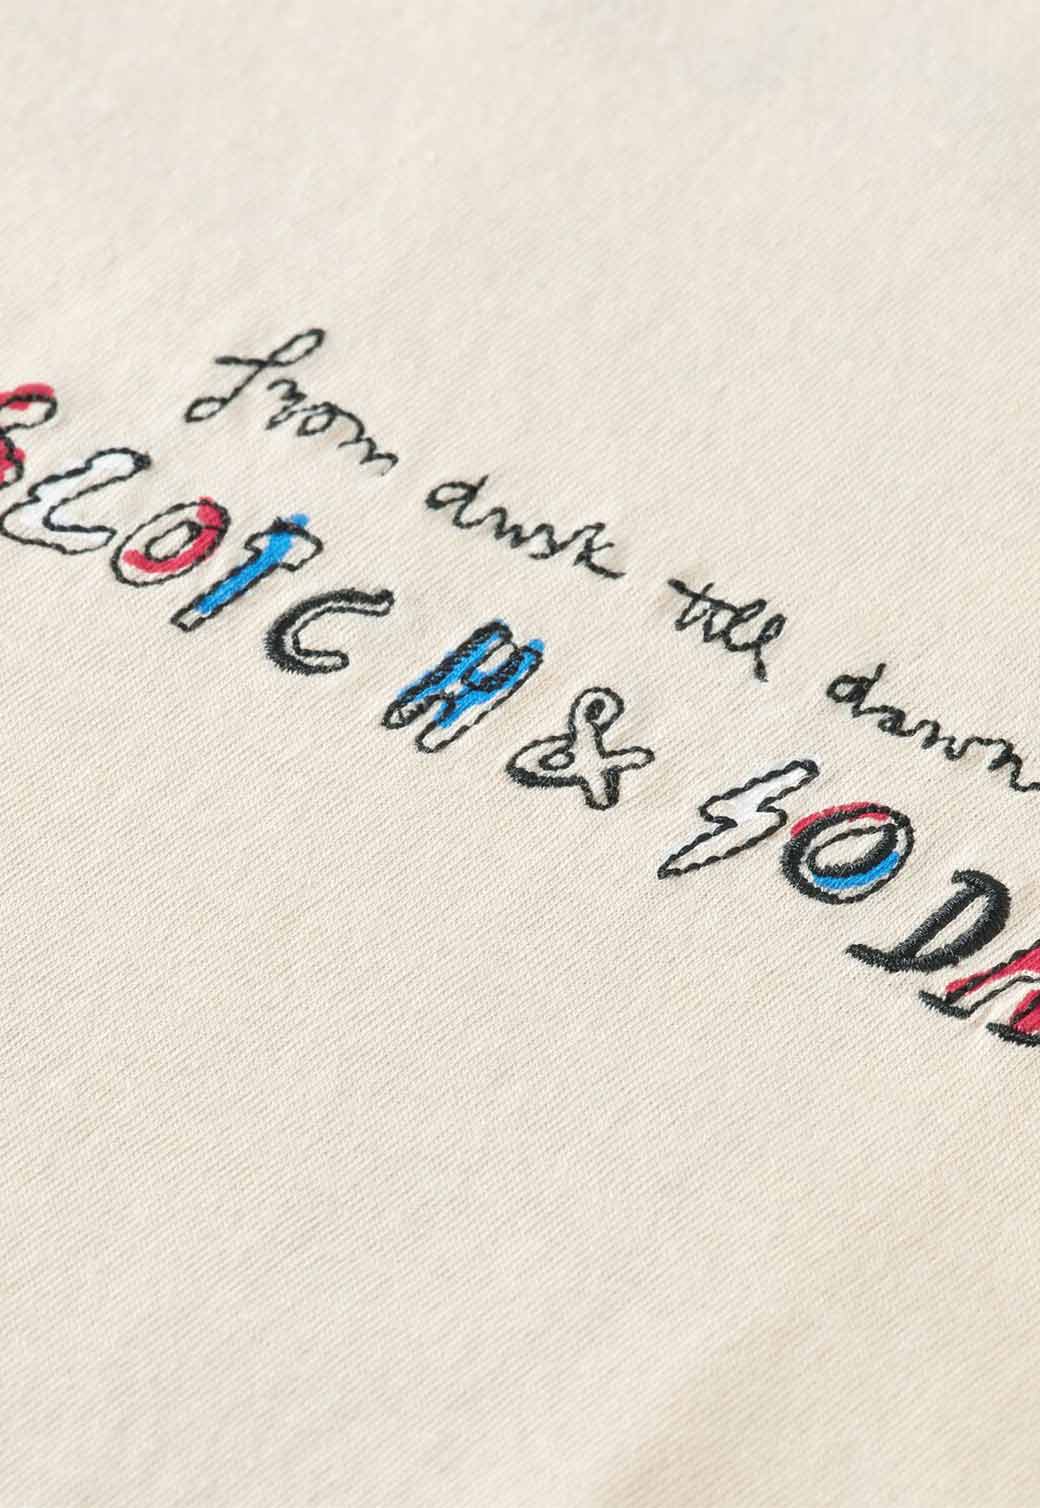 from dusk till dawn
SCOTCH & SODA